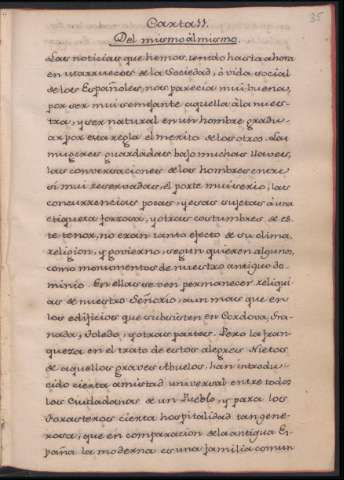 35
Carta 11.
Del mismo al mismo.
Las noticias que hemos tenido hasta ahora
en Marruecos de la Sociedad, ò vida social
de los Españoles, nos parecia mui buena,
por ser mui semejante aquella à la nues-
tra, y ser natural en un hombre gradu-
ar por esta regla el merito de los otros. Las
mugeres guardadas bajo muchas llaves,
las conversaciones de los hombres entre
si mui reservadas, el porte mui serio, las
concurrencias pocas, y esas sujetas à una
etiqueta forzosa, y otras costumbres de es-
te tenor, no eran tanto efecto de su clima,
religion, y govierno, segun quieren algunos,
como monumentos de nuestro antiguo do-
minio. En ellas se ven permanecer reliqui-
as de nuestro Señorio, aun mas que en
los edificios que subsisten en Cordova, Gra-
nada, Toledo, y otras partes. Pero la fran-
queza en el trato de estos alegres Nietos
de aquellos graves Abuelos, han introdu-
cido cierta amistad universal entre todos
los Ciudadanos de un Pueblo, y para los
Forasteros cierta hospitalidad tan gene-
rosa, que en comparacion de la antigua Es-
paña la moderna es una familia comun